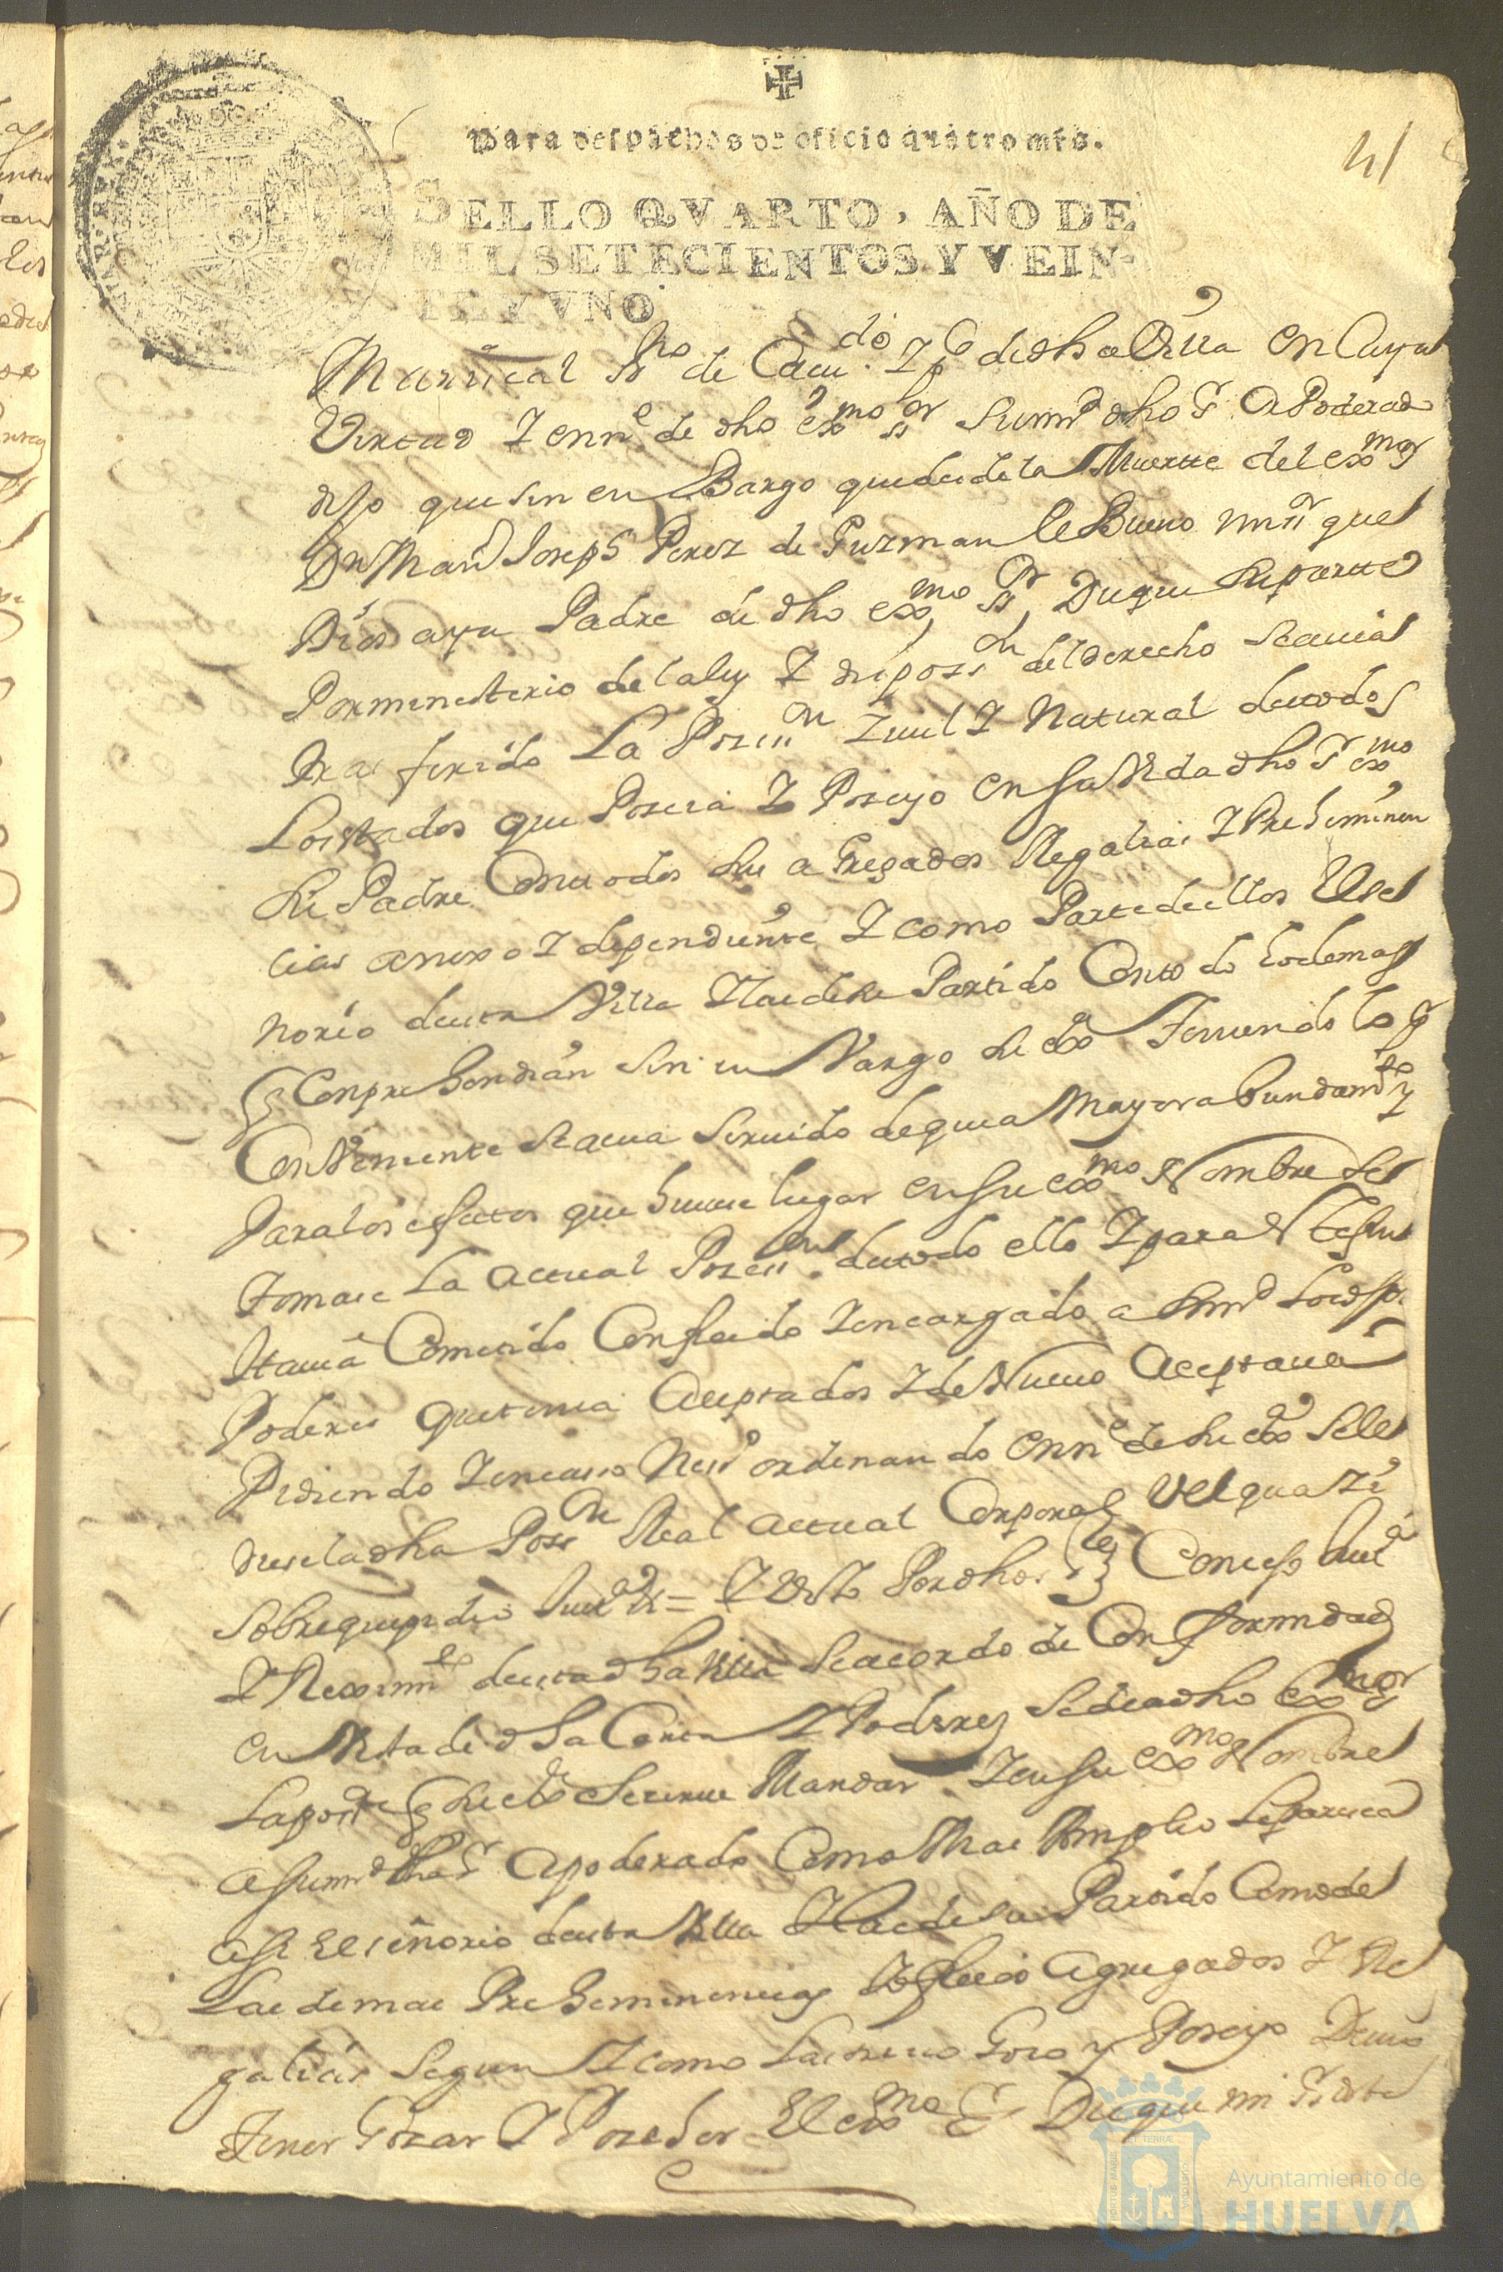 41
Para despachos de oficio quatro mrs.
SELLO QVARTO, AÑO DE
MIL SETECIENTOS Y VEIN-
TE Y VNO.
Mariscal de Cau.do de dha Villa en Cuya
Virtud Y en n.e de dho exmo sr su md dho Sr Apoderado
dijo que sin enBargo que desde la Muertte del exmo Sr
Dn Man.l Joseph Perez de Guzman le Bueno mi sr que
Dios aya Padre de dho exmo Sr Duque su partte
Por ministerio de la ley Y disposs.on del derecho Se auia
trasferido La Poss.on Zuil Y Natural de todos
Los stados que Poseia Y Poseyo en su Vida dho Sr exmo
su Padre Con todos sus aGregados Regalias Y Preheminen
cias anexo Y dependiente Y como Parte de ellos El se
norio desta Villa Y las de su Partido Con todo lo demas
q Conprehendian sin en Vargo su exa Teniendo lo pr
Conveniente se auia seruido de que a Mayor abundam.to Y
Para los efectos que huuiese lugar en su exmo Nombre se
tomase La actual Poss.on de todo ello Y para
Y tenia Cometido Conferido Y encargado a su md Los dhos
Poderes que tenia Aceptados Y de Nuevo Aceptaua
Pidiendo Y en caso Ness.o ordenando en n.e de su exa Se le
diese la dha Poss.on Real actual Corporal Vel quasi
Sobre que pidio Just.a = Y Visto Por dhos Sres Concejo Just.a
Y Reximi.to desta dha Villa Se acordo de Conformidad
en Vista de dha Carta Y Poderes Se de a dho exmo Sr
La poss.on q su exa Se sirve Mandar Y en su exmo Nombre
a su md dho Sr apoderado Como Mas Amplio le paresca
asi El señorio desta Villa Y las de su Partido Como de
Las demas Preheminencias Agregados Y Re
galias Segun Y como La tuuo Gozo y Poseyo Deuio
tener Gozar Y Poseher El exmo Sr Duque mi Sr
Ayuntamiento de
HUELVA